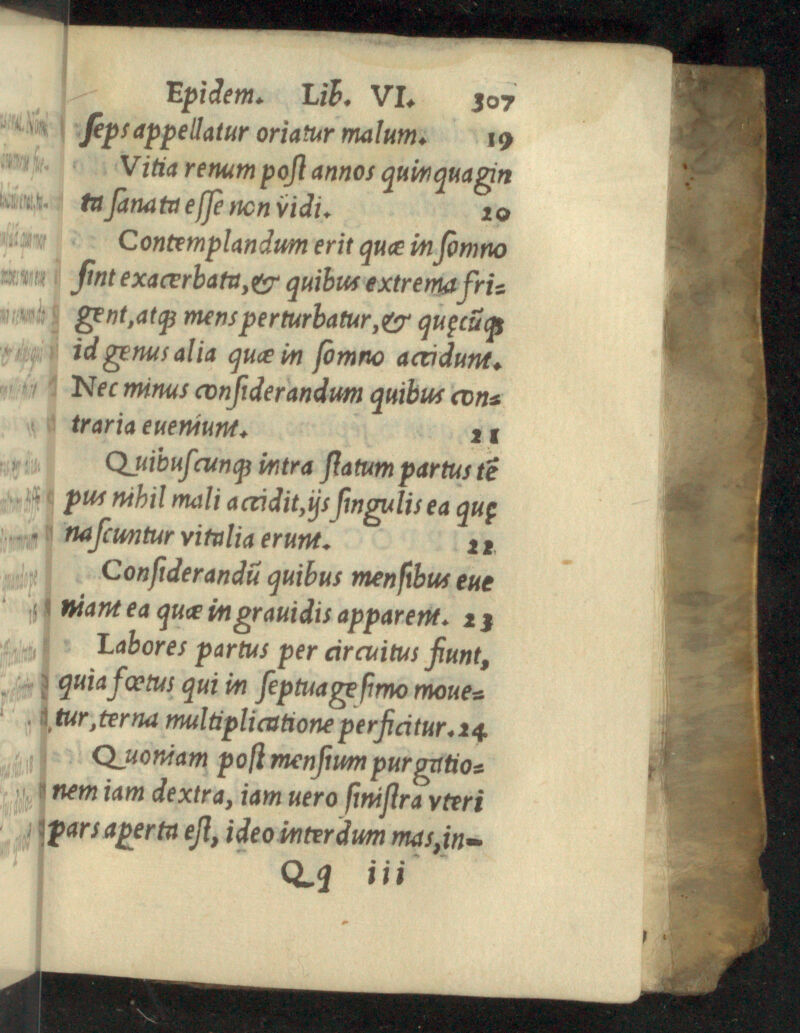 Epidem. Lib. VI. 307
seps appellatur oriatur malum. 19
Vitia renum post annos quinquagin
ta sanata esse non vidi. 20
Contemplandum erit quæ in somno
sint exacerbata, & quibus extrema fri=
gent, atq; mens perturbatur, & quęcūq;
id genus alia quæ in somno accidunt.
Nec minus considerandum quibus con=
traria eueniunt. 21
Quibuscunq; intra statum partus tē
pus nihil mali accidit, ijs singulis ea quę
nascuntur vitalia erunt. 22
Considerandū quibus mensibus eue
niant ea quæ in grauidis apparent. 23
Labores partus per circuitus fiunt,
quia fœtus qui in septuagesimo moue=
tur, terna multiplicatione perficitur. 24
Quoniam post mensium purgatio=
nem iam dextra, iam uero sinistra vteri
pars aperta est, ideo interdum mas, in-
Qq iii